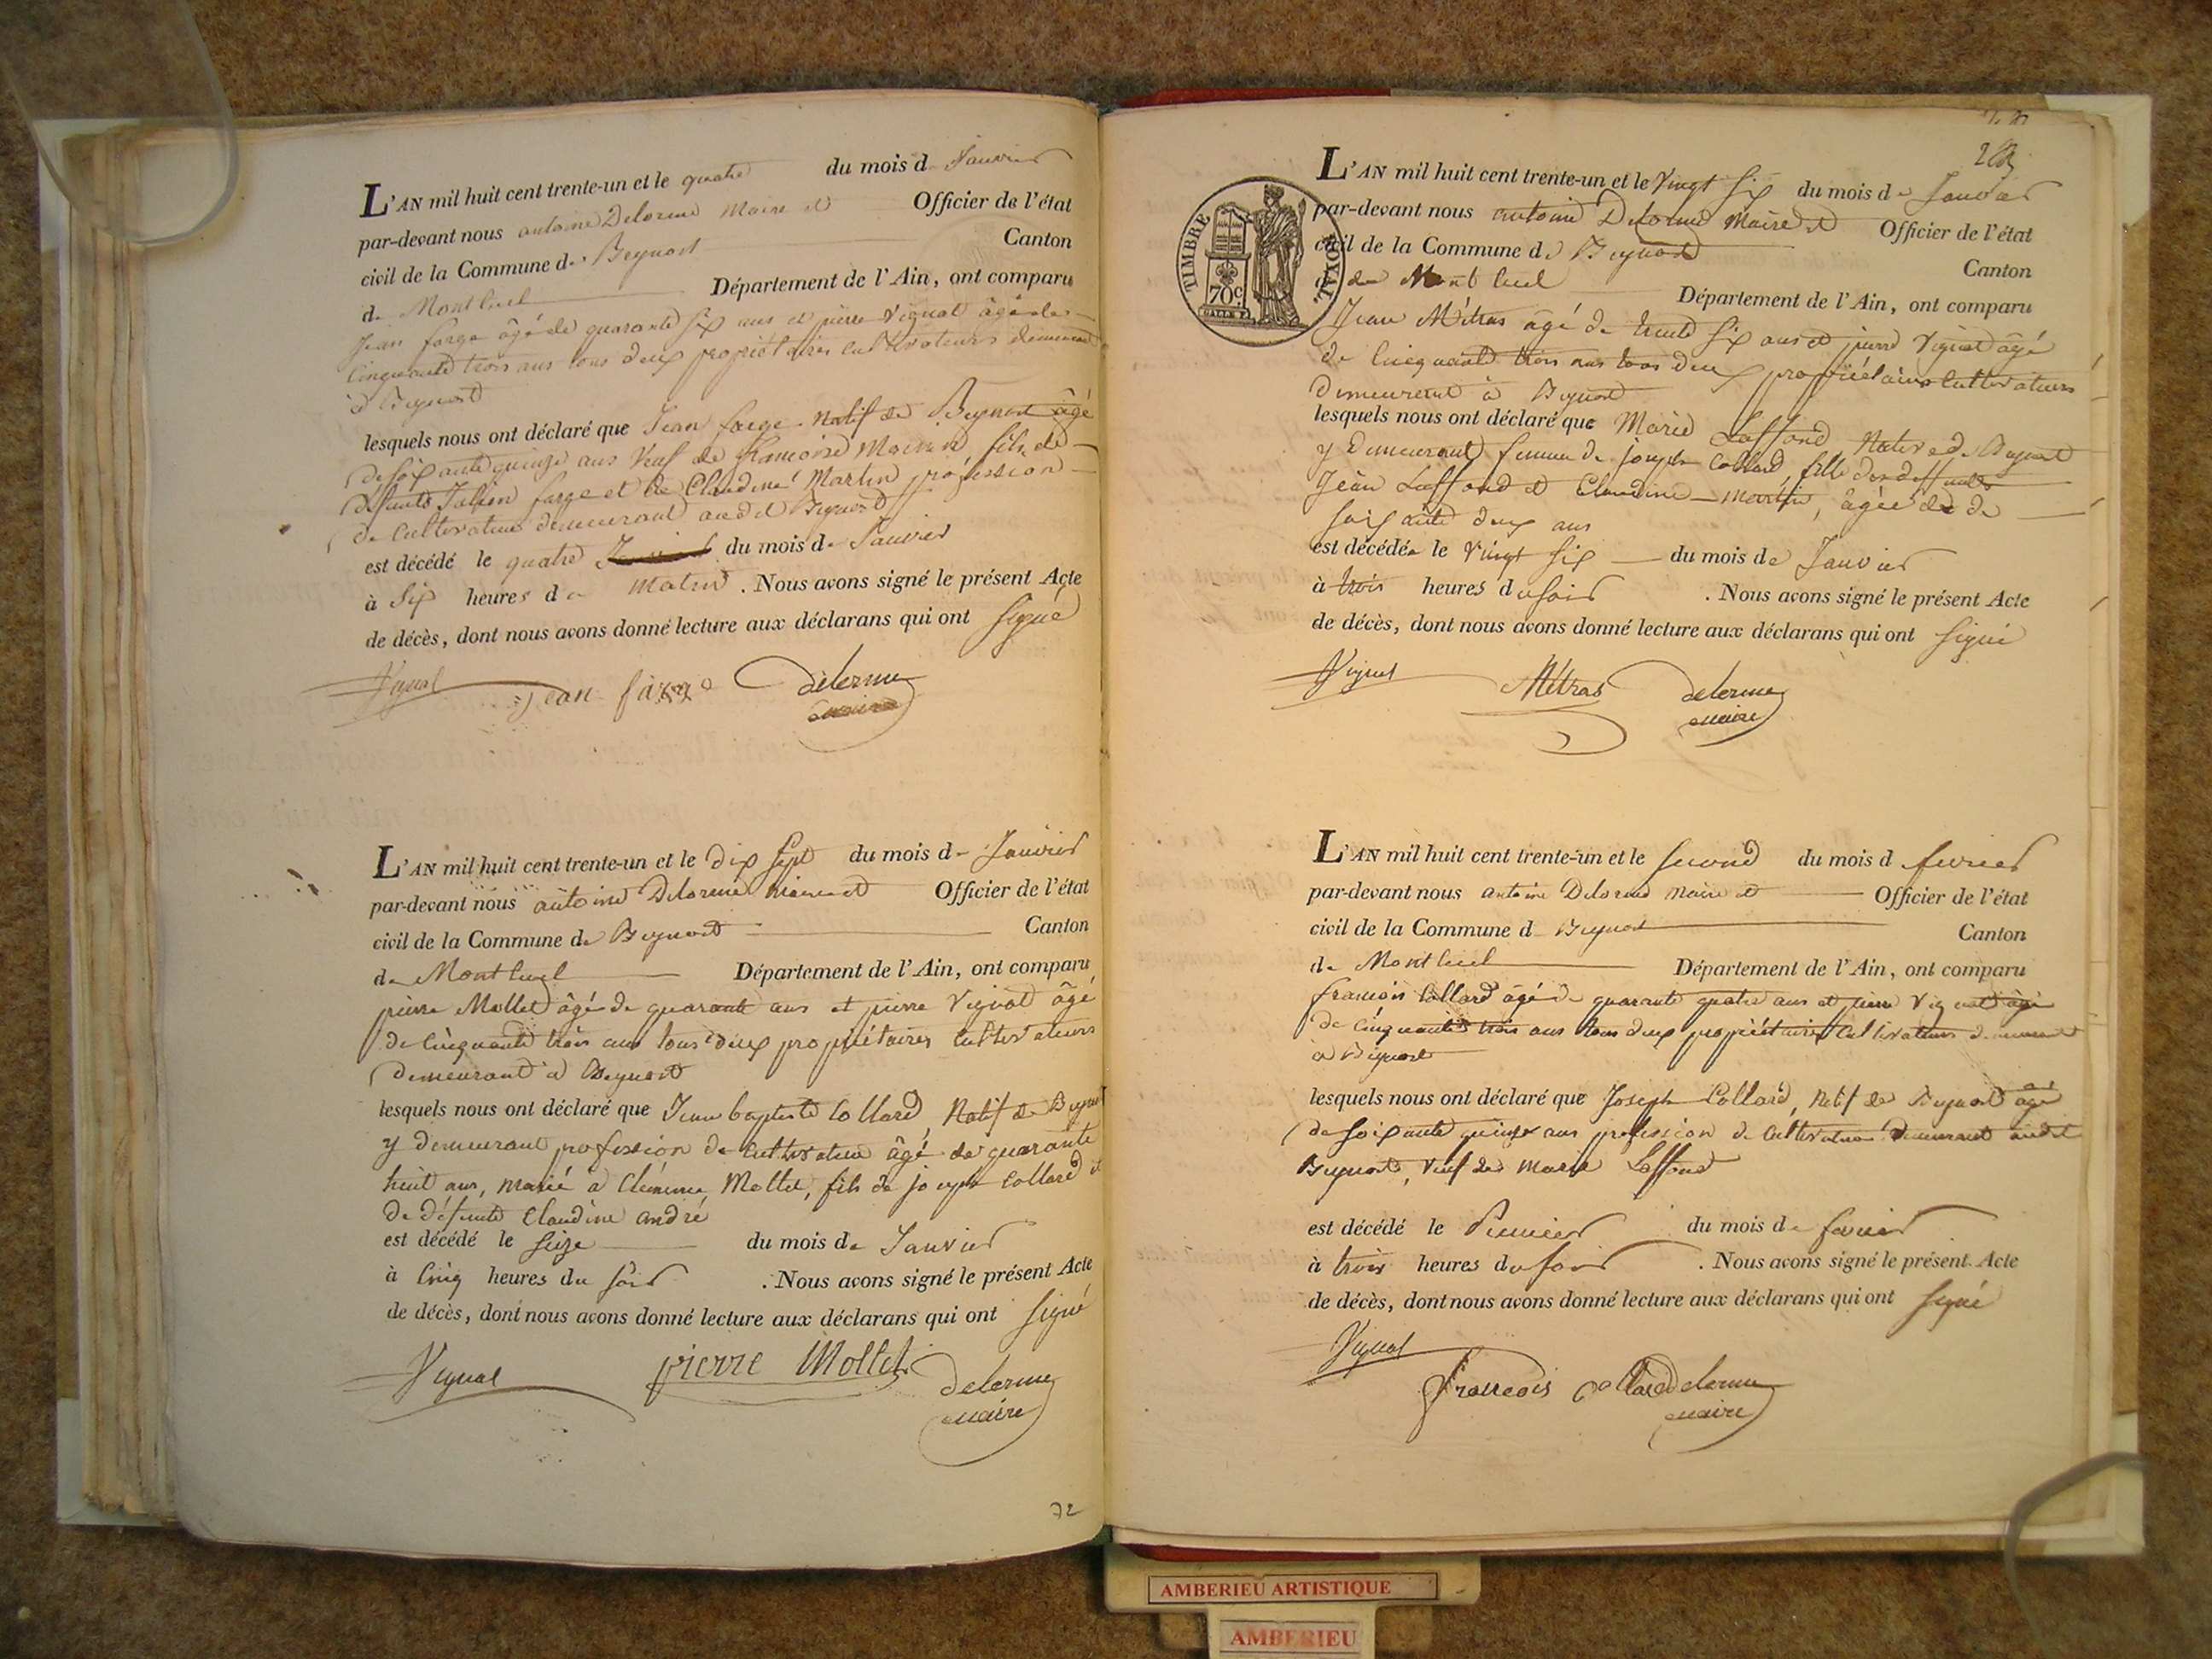 L'AN mil huit cent trente-un et le quatre du mois d Janvier
par-devant nous antoine Delorme Maire et Officier de l'état
civil de la Commune de Beynost Canton
de Montluel Département de l'Ain, ont comparu
Jean farge âgé de quarante six ans et pierre Vignat âgé de
Cinquante trois ans tous deux propriétaires cultivateurs demeurant
à Beynost
lesquels nous ont déclaré que Jean farge Natif de Beynost âgé
de soixante quinze ans Veuf de françoise fils de
défunts farge et de Claudine Martin profession
de Cultivateur demeurant audit Beynost
est décédé le quatre du mois de Janvier
à Six heures du Matin. Nous avons signé le présent Acte
de décès, dont nous avons donné lecture aux déclarans qui ont Signé
Vignat Jean farge delorme
maire
L'AN mil huit cent trente-un et le dix Sept du mois d Janvier
par-devant nous antoine Delorme maire et Officier de l'état
civil de la Commune de Beynost Canton
de Montluel Département de l'Ain, ont comparu
pierre Mollet âgé de quarante ans et pierre Vignat âgé
de Cinquante trois ans tous deux propriétaires Cultivateurs
demeurant à Beynost
lesquels nous ont déclaré que Jean baptiste Collard, Natif de Beynost
y demeurant profession de Cultivateur âgé de quarante
huit ans, marié à Mollet, fils de joseph Collard et
de défunte Claudine andré
est décédé le Seize du mois de Janvier
à Cinq heures du soir. Nous avons signé le présent Acte
de décès, dont nous avons donné lecture aux déclarans qui ont signé
Vignat pierre Mollet delorme
maire
72
TIMBRE ROYAL
70c
L'AN mil huit cent trente-un et le Vingt Six du mois de Janvier
par-devant nous antoine Delorme Maire et Officier de l'état
civil de la Commune de Beynost Canton
de Montluel Département de l'Ain, ont comparu
Jean Métras âgé de trente Six ans et pierre Vignat âgé
de Cinquante trois ans tous deux propriétaires Cultivateurs
demeurant à Beynost
lesquels nous ont déclaré que Marie Laffond Native de Beynost
y demeurant femme de joseph Collard fille des deffunts
Jean Laffond et Claudine Martin, âgée de de
soixante deux ans
est décédée le Vingt Six du mois de Janvier
à trois heures du soir. Nous avons signé le présent Acte
de décès, dont nous avons donné lecture aux déclarans qui ont signé
Vignat Métras delorme
maire
L'AN mil huit cent trente-un et le second du mois d fevrier
par-devant nous antoine Delorme maire et Officier de l'état
civil de la Commune d Beynost Canton
de Montluel Département de l'Ain, ont comparu
françois Collard âgé de quarante quatre ans et pierre Vignat âgé
de Cinquante trois ans tous deux propriétaires Cultivateurs demeurant
à Beynost
lesquels nous ont déclaré que Joseph Collard, Natif de Beynost âgé
de soixante quinze ans profession de Cultivateur demeurant audit
Beynost, Veuf de Marie Laffond
est décédé le Premier du mois de fevrier
à trois heures du soir. Nous avons signé le présent Acte
de décès, dont nous avons donné lecture aux déclarans qui ont signé
Vignat
francois collard delorme
maire
AMBERIEU ARTISTIQUE
AMBERIEU